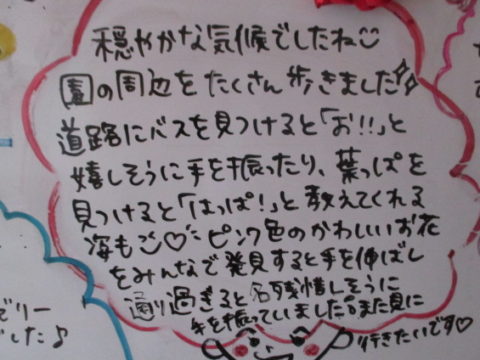 穏やかな気候でしたね
園の周辺をたくさん歩きました
道路にバスを見つけると「お!!」と
嬉しそうに手を振ったり、葉っぱを
見つけると「はっぱ!」と教えてくれる
海も♡ピンク色のかわいいお花
をみんなで発見すると手を伸ばし
通り過ぎると名残惜しそうに
手を振っていました。また見に
行きたいです♡
ゼリー
でした♪